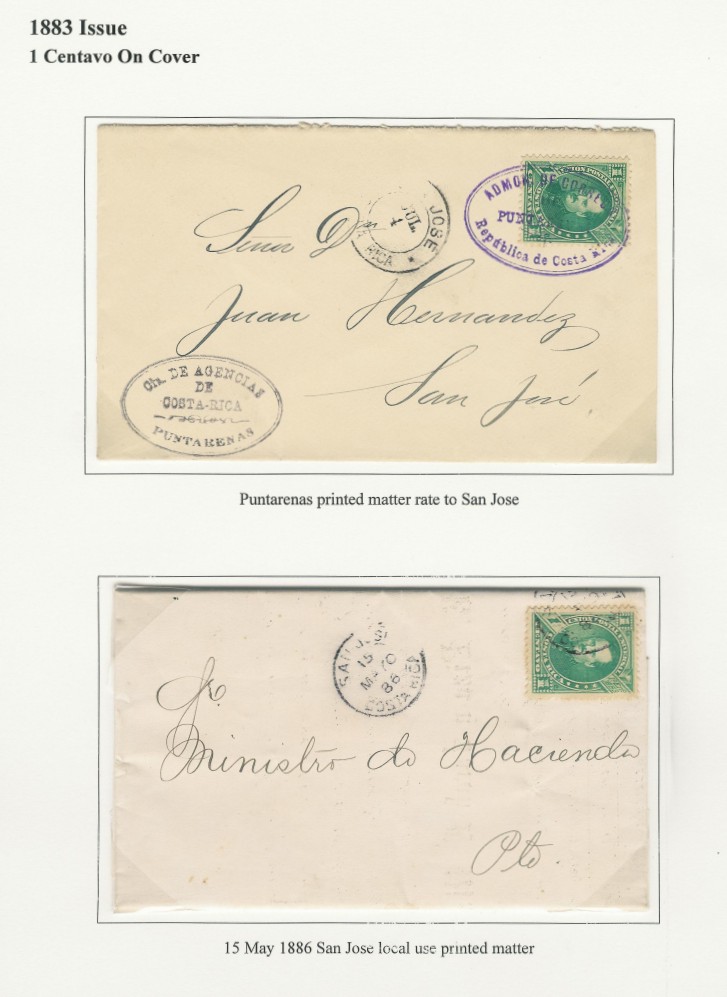 1883 Issue
1 Centavo On Cover
UNION POSTAL UNIVERSAL
ADMON. DE CORRE
PUNT
República de Costa Rica
JOSE
JUL
1
RICA
Señor Dn
Juan Hernandez
San José
Cía. DE AGENCIAS
DE
COSTA-RICA
PUNTARENAS
Puntarenas printed matter rate to San Jose
UNION POSTAL UNIVERSAL
SAN JOSE
15
MAYO
86
COSTA RICA
Sr.
Ministro de Hacienda
Pte.
15 May 1886 San Jose local use printed matter